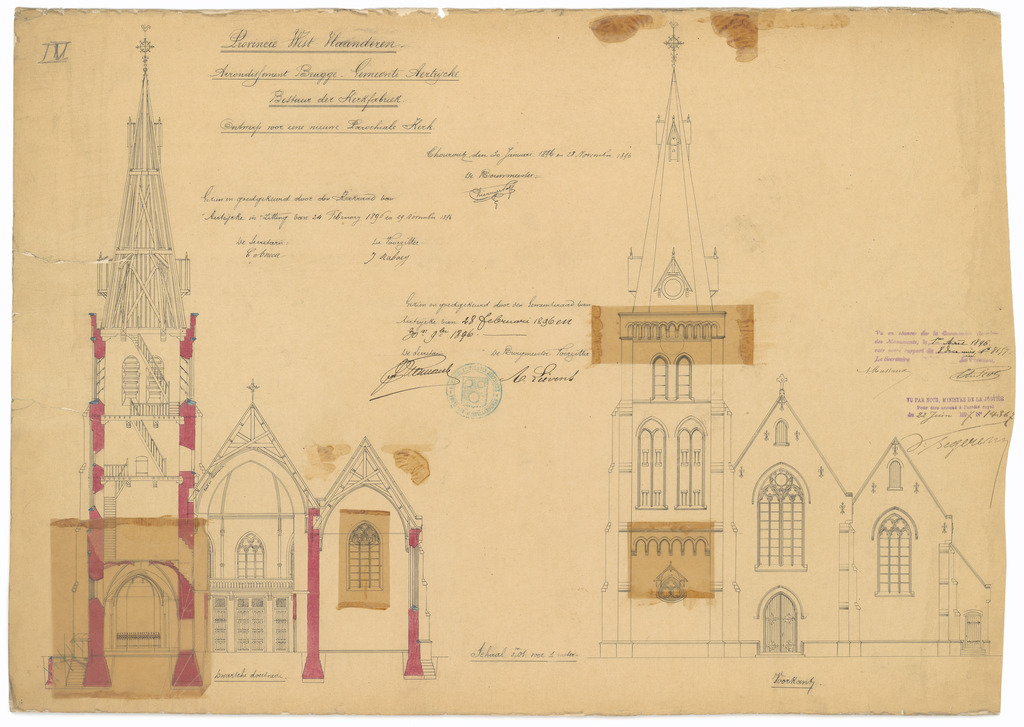 IV
Provincie West Vlaanderen.
Arrondissement Brugge. Gemeente Aertrycke
Bestuur der Kerkfabriek.
Ontwerp voor eene nieuwe Parochiale Kerk
Thourout, den 20 Januari 1896 en 28 November 1896
De Bouwmeester,
Gezien en goedgekeurd door den Kerkraad van
Aertrycke in zitting van 24 February 1896 en 29 November 1896
De Secretaris
De Voorzitter
Gezien en goedgekeurd door den Gemeenteraad van
Aertrycke van 28 februari 1896 en
30n 9ber 1896
De Secretaris
De Burgmeester Voorzitter
A. Lievens
Vu en séance de la Commission royale
des Monuments, le
Le Secrétaire
VU PAR NOUS, MINISTRE DE LA JUSTICE
Pour être annexé à l'arrêté royal
du 23 Juin
Schaal 0,01 voor 1 meter
Dwarsche doorsnede
Voorkant